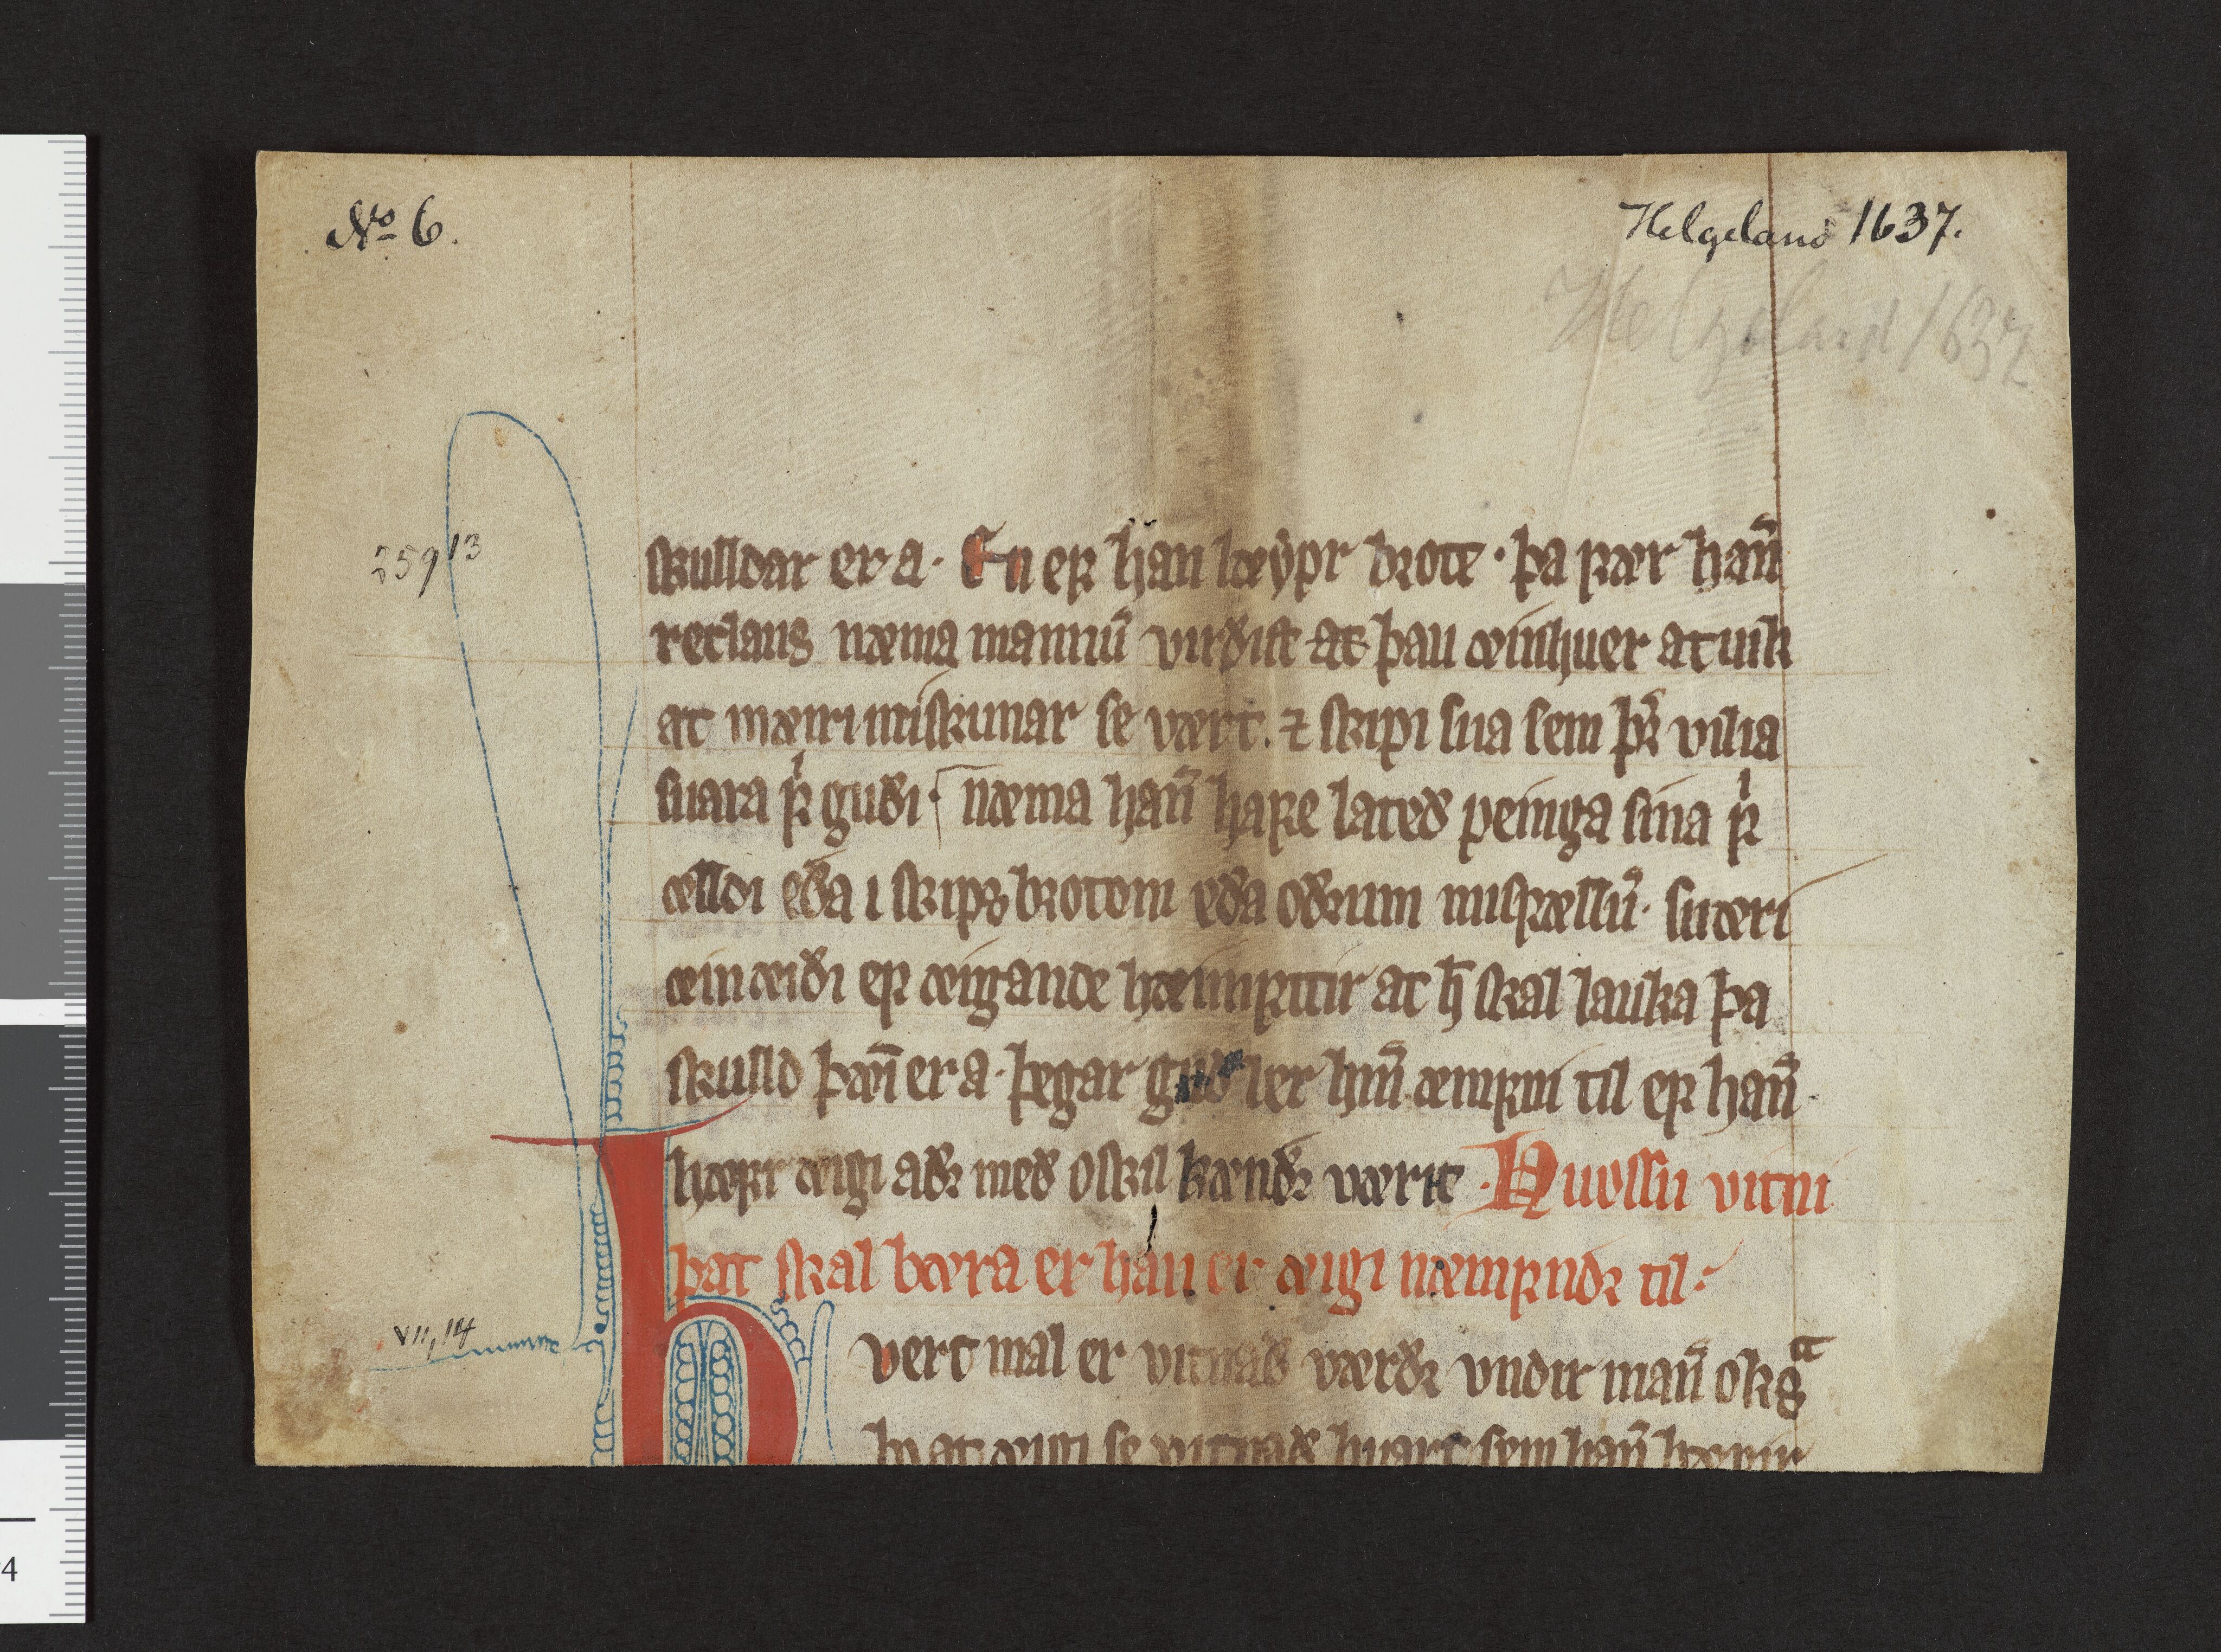 No 6.
Helgeland 1637.
Helgeland 1637
259 13
skulldar er a. En ef han lœypr brote. þa fær han̄
retlaus nœma mannū virðist at þau œinhuer atuik
at mœiri miskunar se vært. ⁊ skipi sua sem þr̄ vilia
suara fͥ guði. nœma han̄ hafe lateð peninga sina fͥ
œlldi eða i skips brotom eða oðrum misfœllū. sueri
œin œiði ef œigande hœimptir at h̄ skal lauka þa
skulld þœī er a. þegar guð ler hm̄ œmfni til ef han̄
hœfir œigi aðr með oskil kœndr værit. Huossu vitni
þat skal bœra er han er œigi nœmfndr til.
VII, 14
vert mal er vitnað værdr vndir man̄ okgͣ
þo at œigi se vitnað huart sem han̄